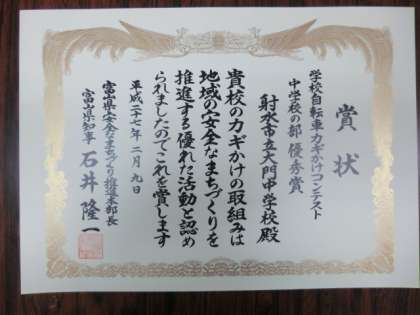 賞状
学校自転車カギかけコンテスト
中学校の部 優秀賞
射水市立大門中学校殿
貴校のカギかけの取組みは
地域の安全なまちづくりを
推進する優れた活動と認め
られましたのでこれを賞します
平成二十七年二月九日
富山県安全なまちづくり推進本部長
富山県知事 石井隆一